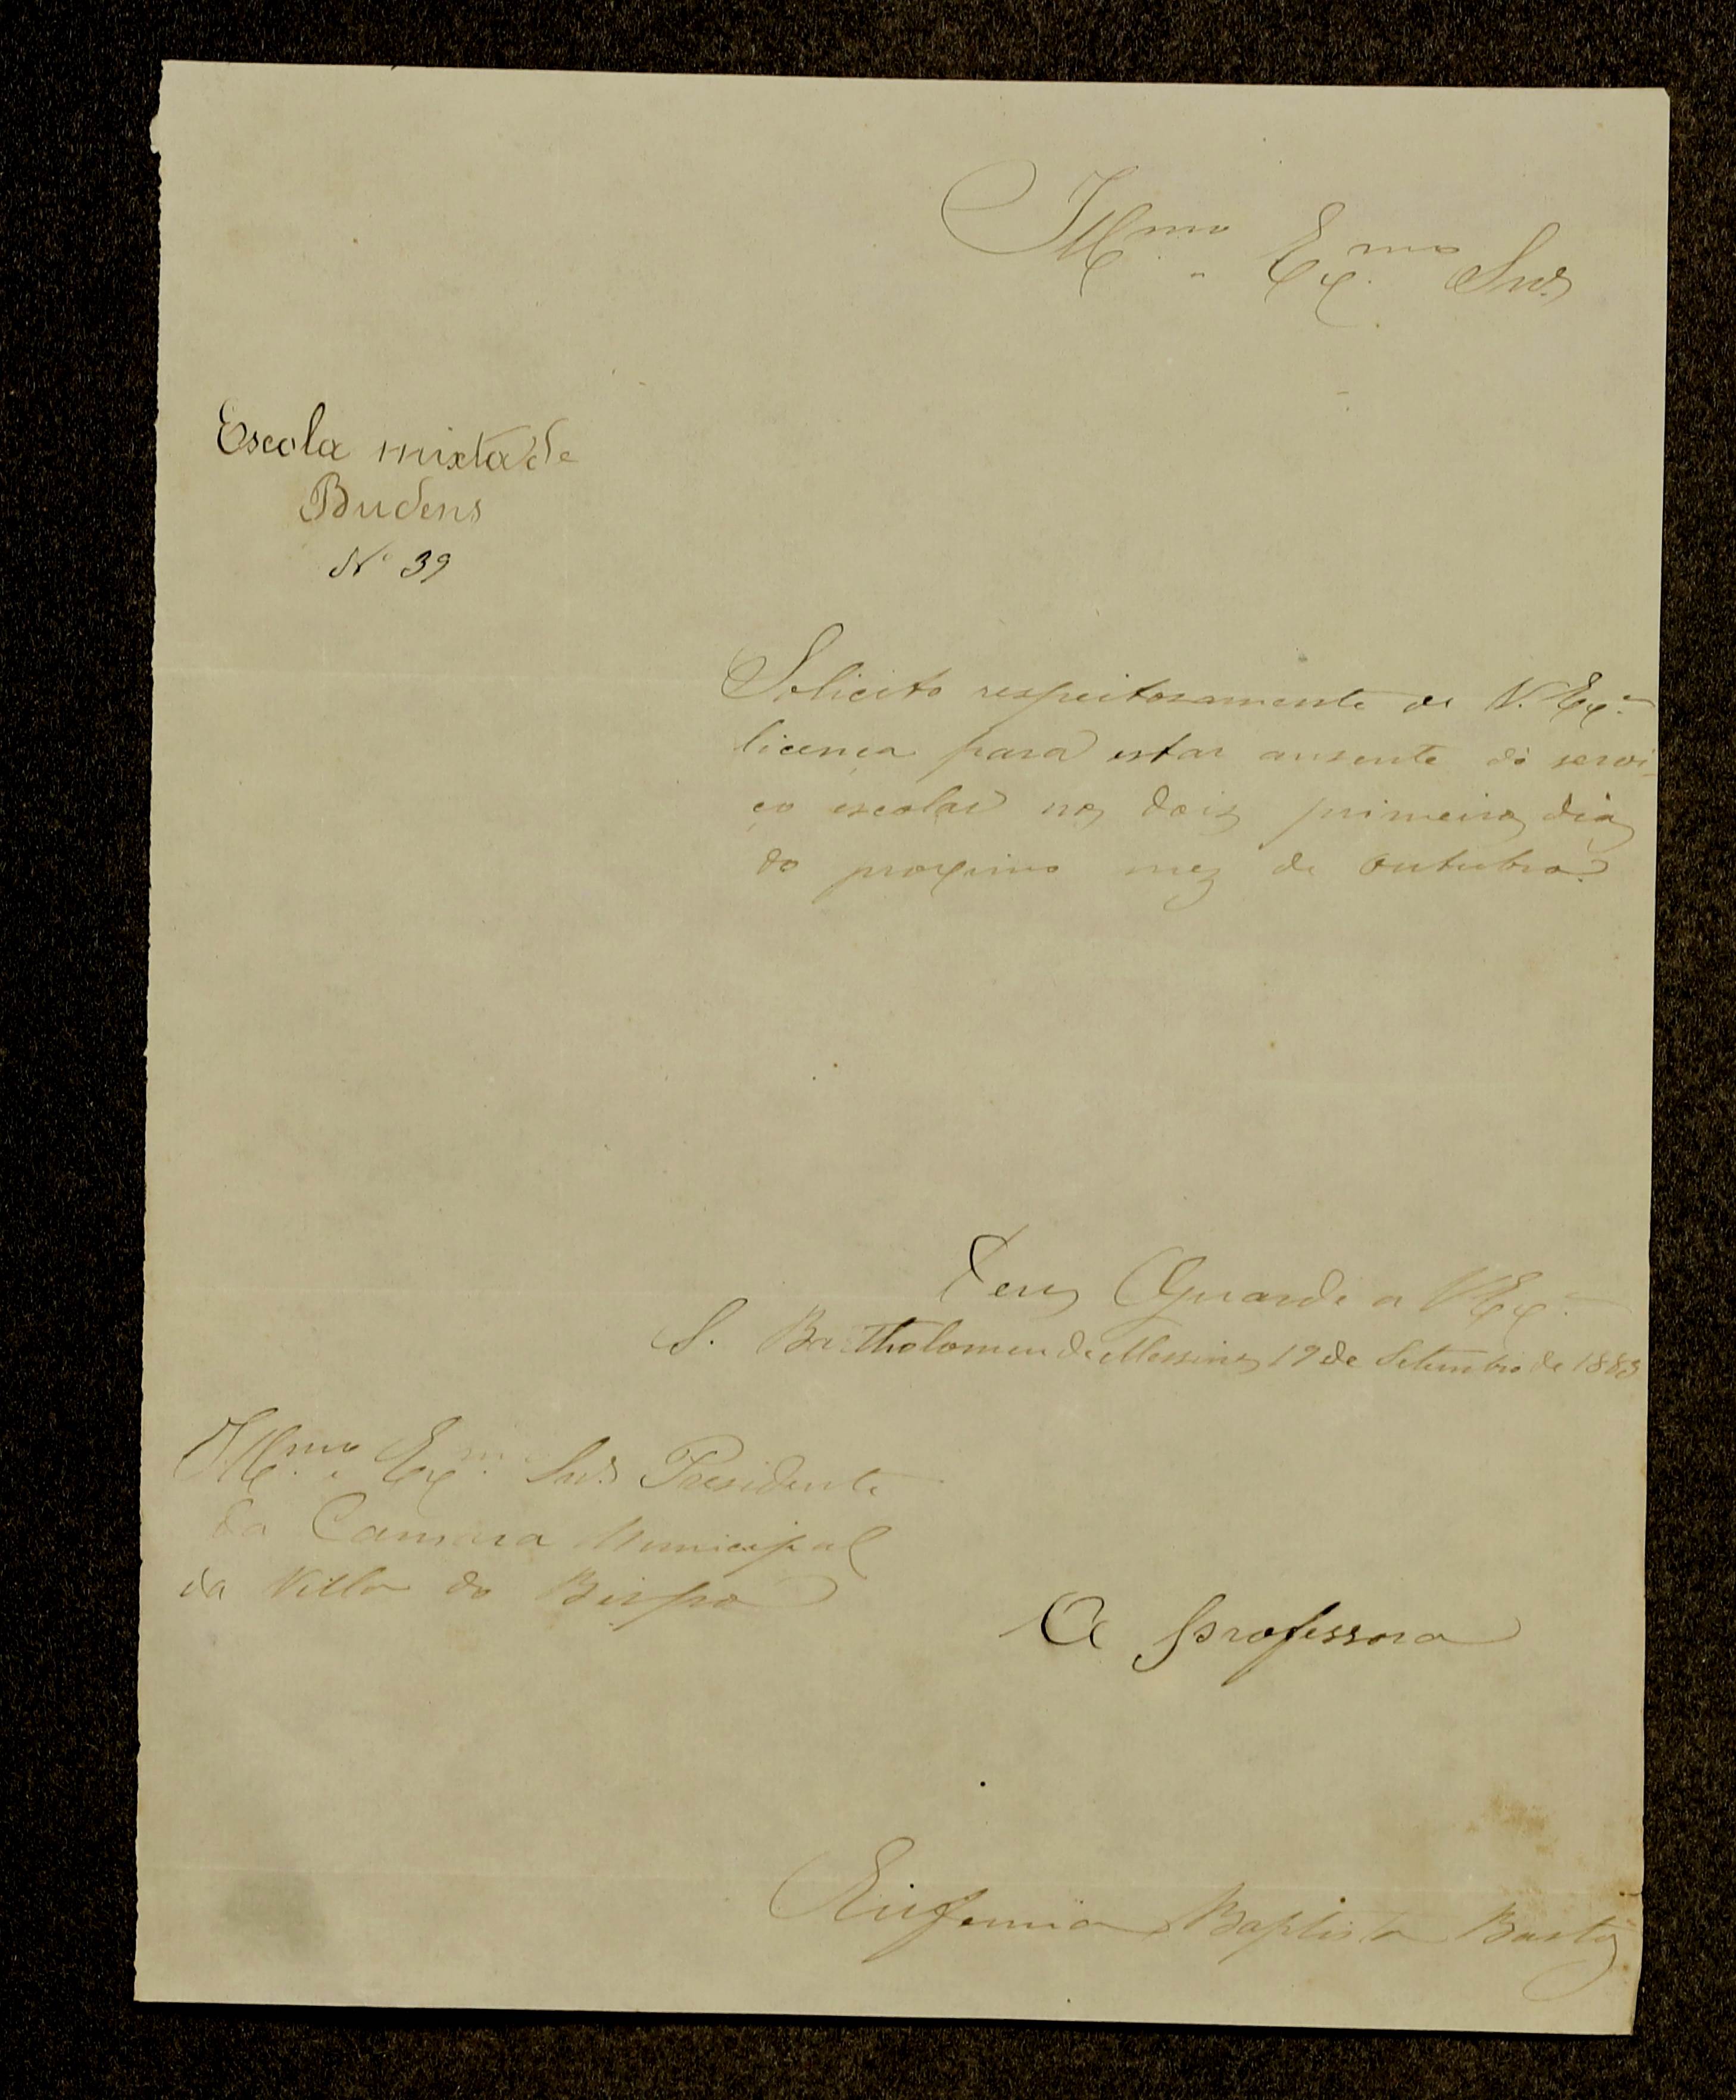 Ill.mo e Ex.mo Snr.
Escola mixta de
Budens
Nº 39
Solicito respeitosamente de V. Ex.ª
licença para estar ausente do servi-
ço escolar nos dois primeiros dias
do proximo mez de Outubro.
Deus Guarde a V. Ex.ª
S. Bartholomeu de Messines 19 de Setembro de 1883
Ill.mo e Ex.mo Snr. Presidente
da Camara Municipal
da Villa do Bispo
A professora
Eufemia Baptista Bastos